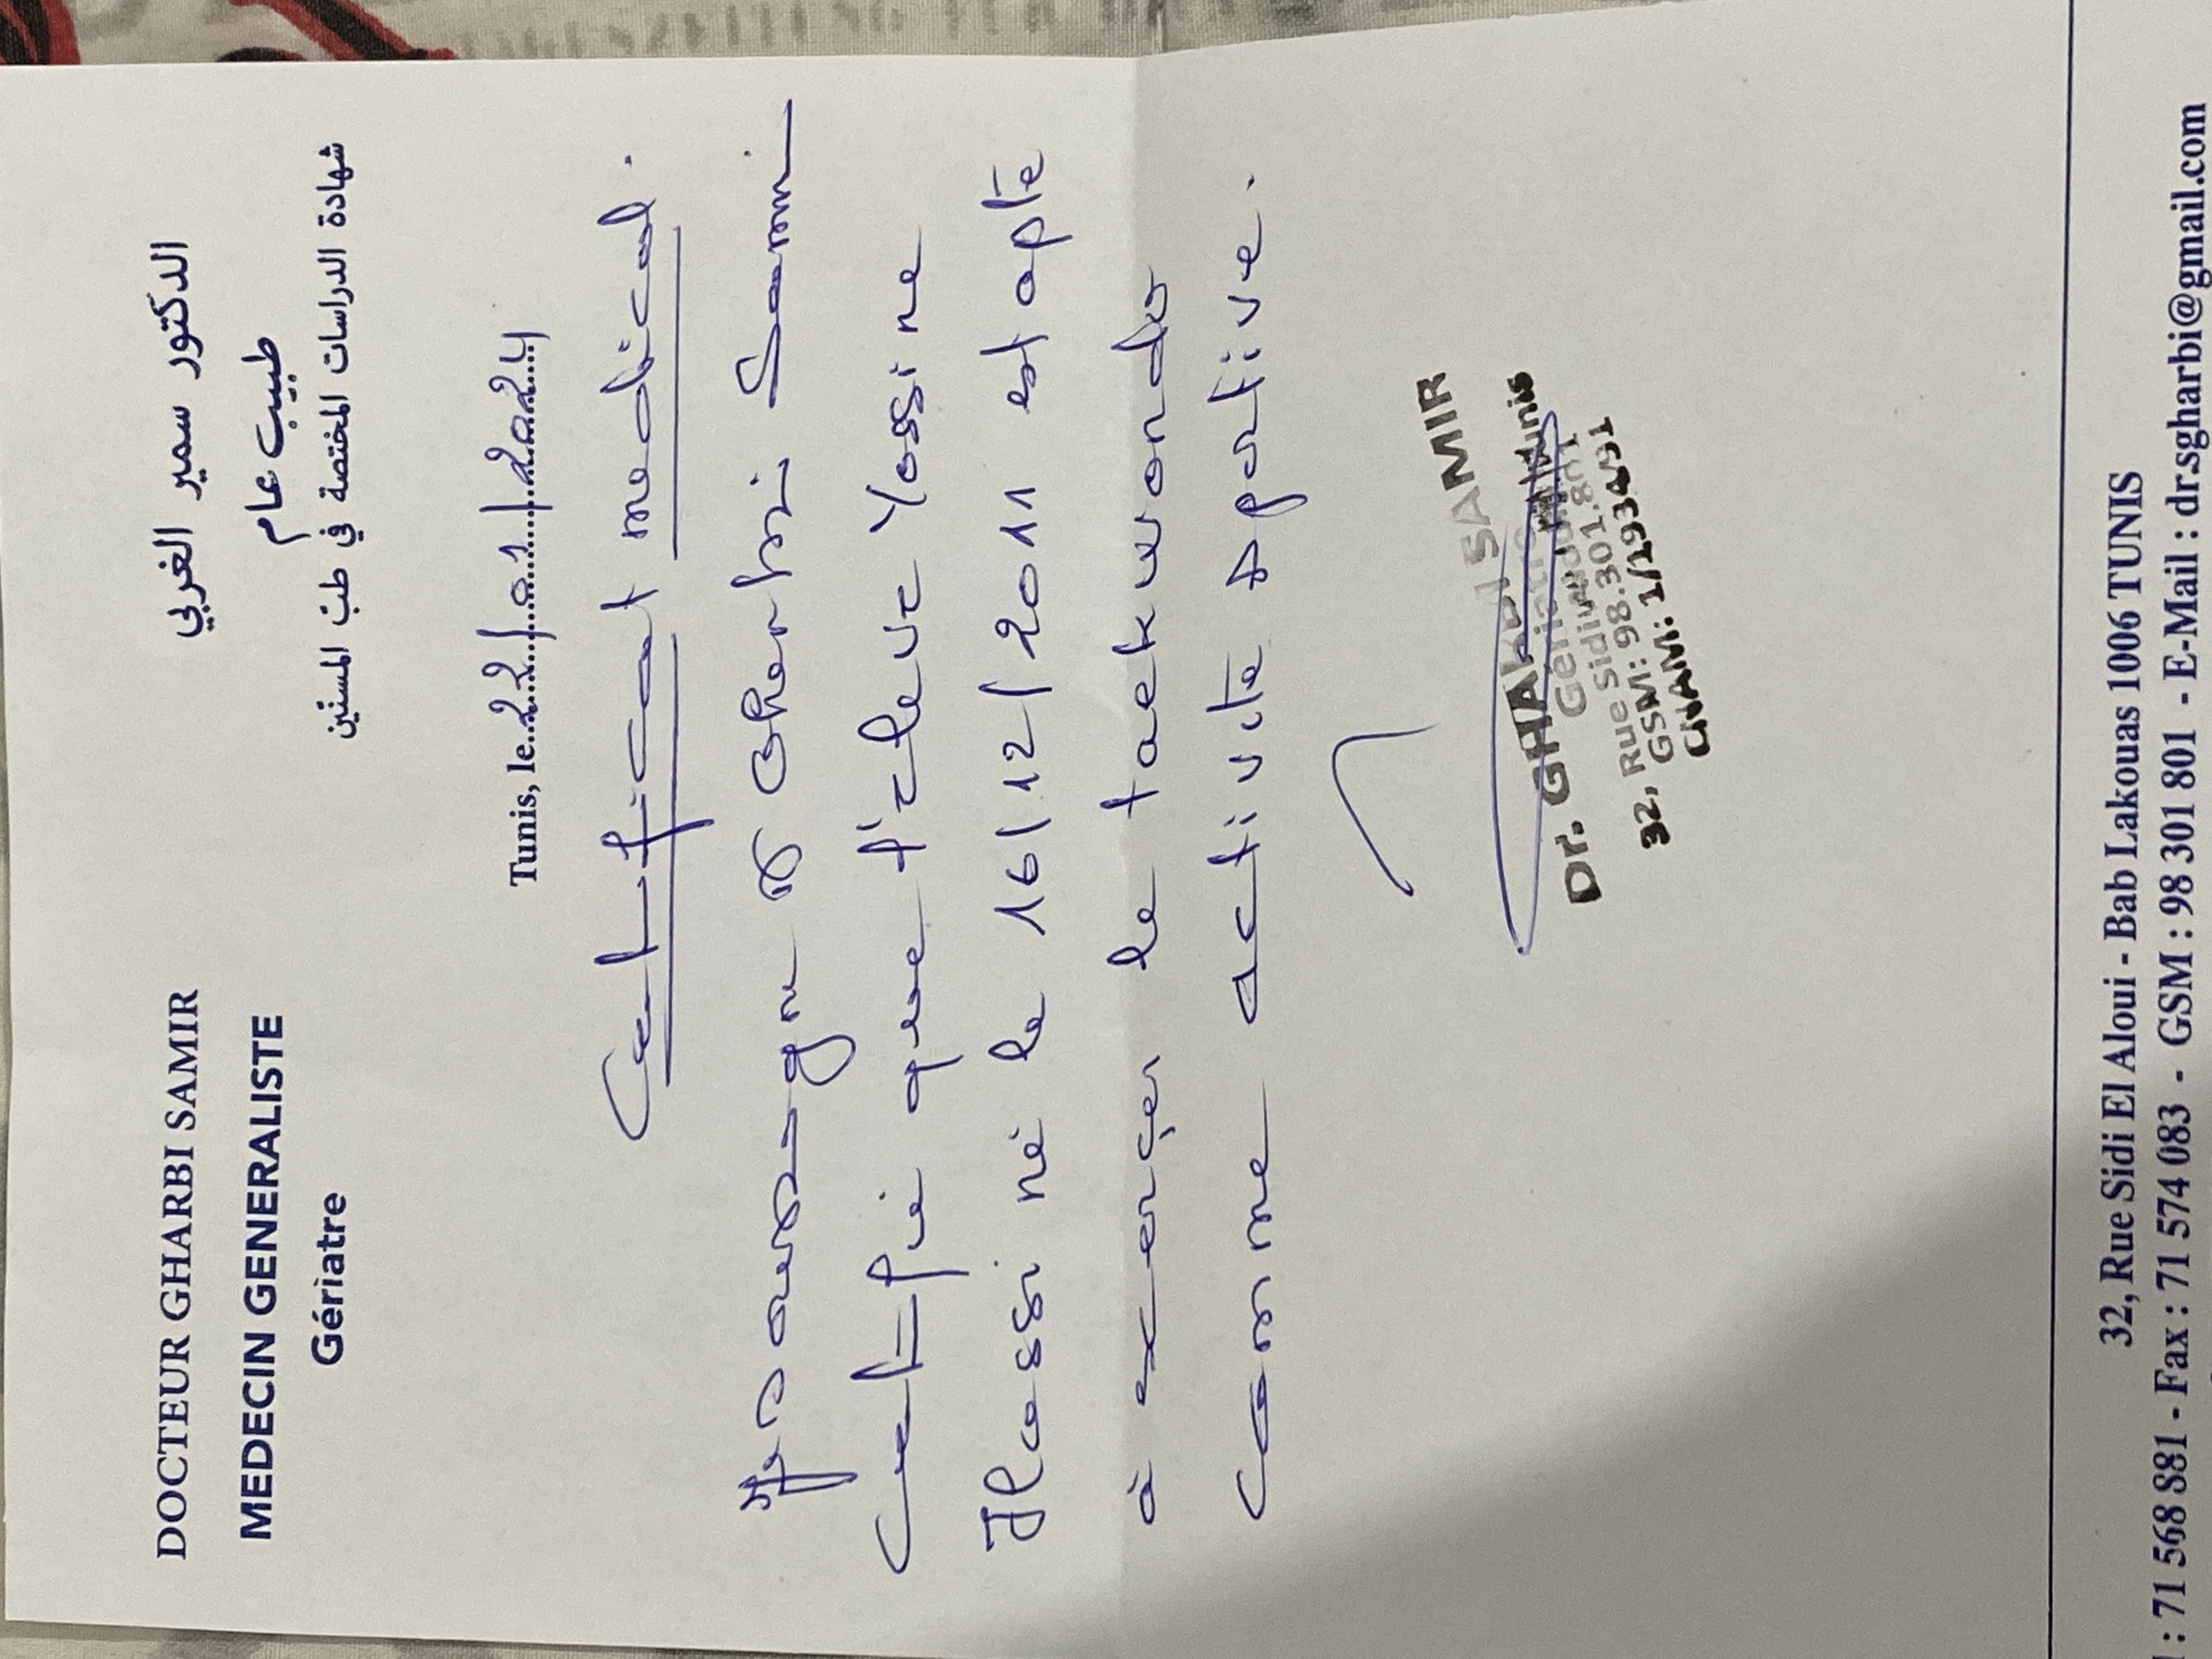 DOCTEUR GHARBI SAMIR
MEDECIN GENERALISTE
Gériatre
الدكتور سمير الغربي
طبيب عام
شهادة الدراسات المختصة في طب المسنين
Tunis, le 22/01/2024
Certificat médical.
Je soussigné Dr Gharbi Samir
Certifie que l'élève Yassine
né le 16/12/2011 est apte
à exercer le taekwondo
comme activité sportive.
Dr. GHARBI SAMIR
Gériatre Tunis
32, Rue Sidi
GSM: 98.301.801
CNAM: 1/19934/91
32, Rue Sidi El Aloui - Bab Lakouas 1006 TUNIS
: 71 568 881 - Fax : 71 574 083 - GSM : 98 301 801 - E-Mail : dr.sgharbi@gmail.com